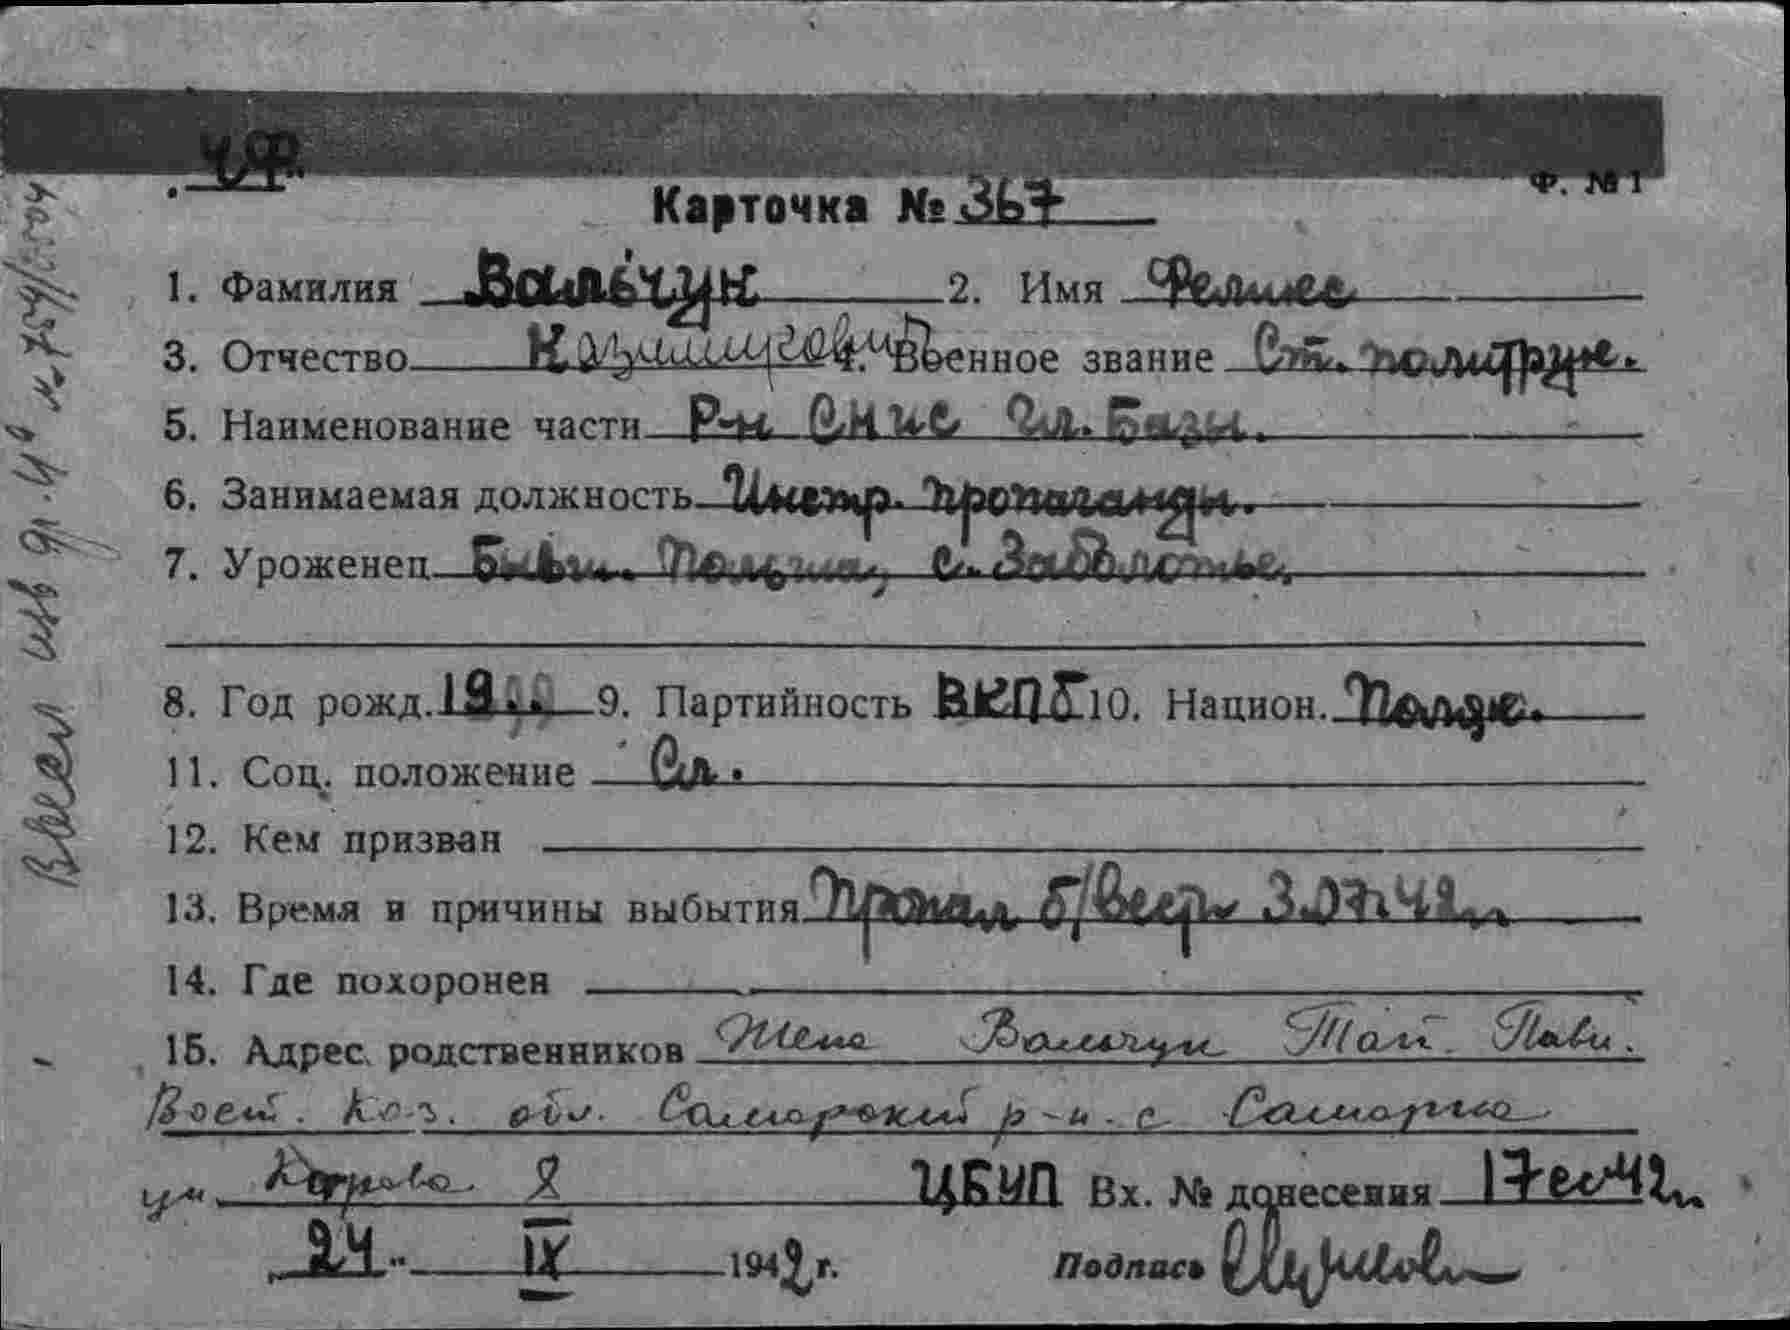 ЧФ.
Ф. № 1
Карточка № 367
1. Фамилия Вальчук 2. Имя Феликс
3. Отчество Казимирович 4. Военное звание Ст. политрук.
5. Наименование части Р-н СНИС Гл. Базы.
6. Занимаемая должность Инстр. пропаганды.
7. Уроженец Бывш. Польша, с. Заболотье.
8. Год рожд. 19 9. Партийность ВКПб 10. Национ. Поляк.
11. Соц. положение Сл.
12. Кем призван
13. Время и причины выбытия Пропал б/вести 3.07.42г
14. Где похоронен
15. Адрес родственников Жена Вальчук Тат. Павл.
Вост. Каз. обл. Самарский р-н. с Самарка
ул. Кирова 8 ЦБУП Вх. № донесения 17сс 42г
24 IX 1942 г. Подпись